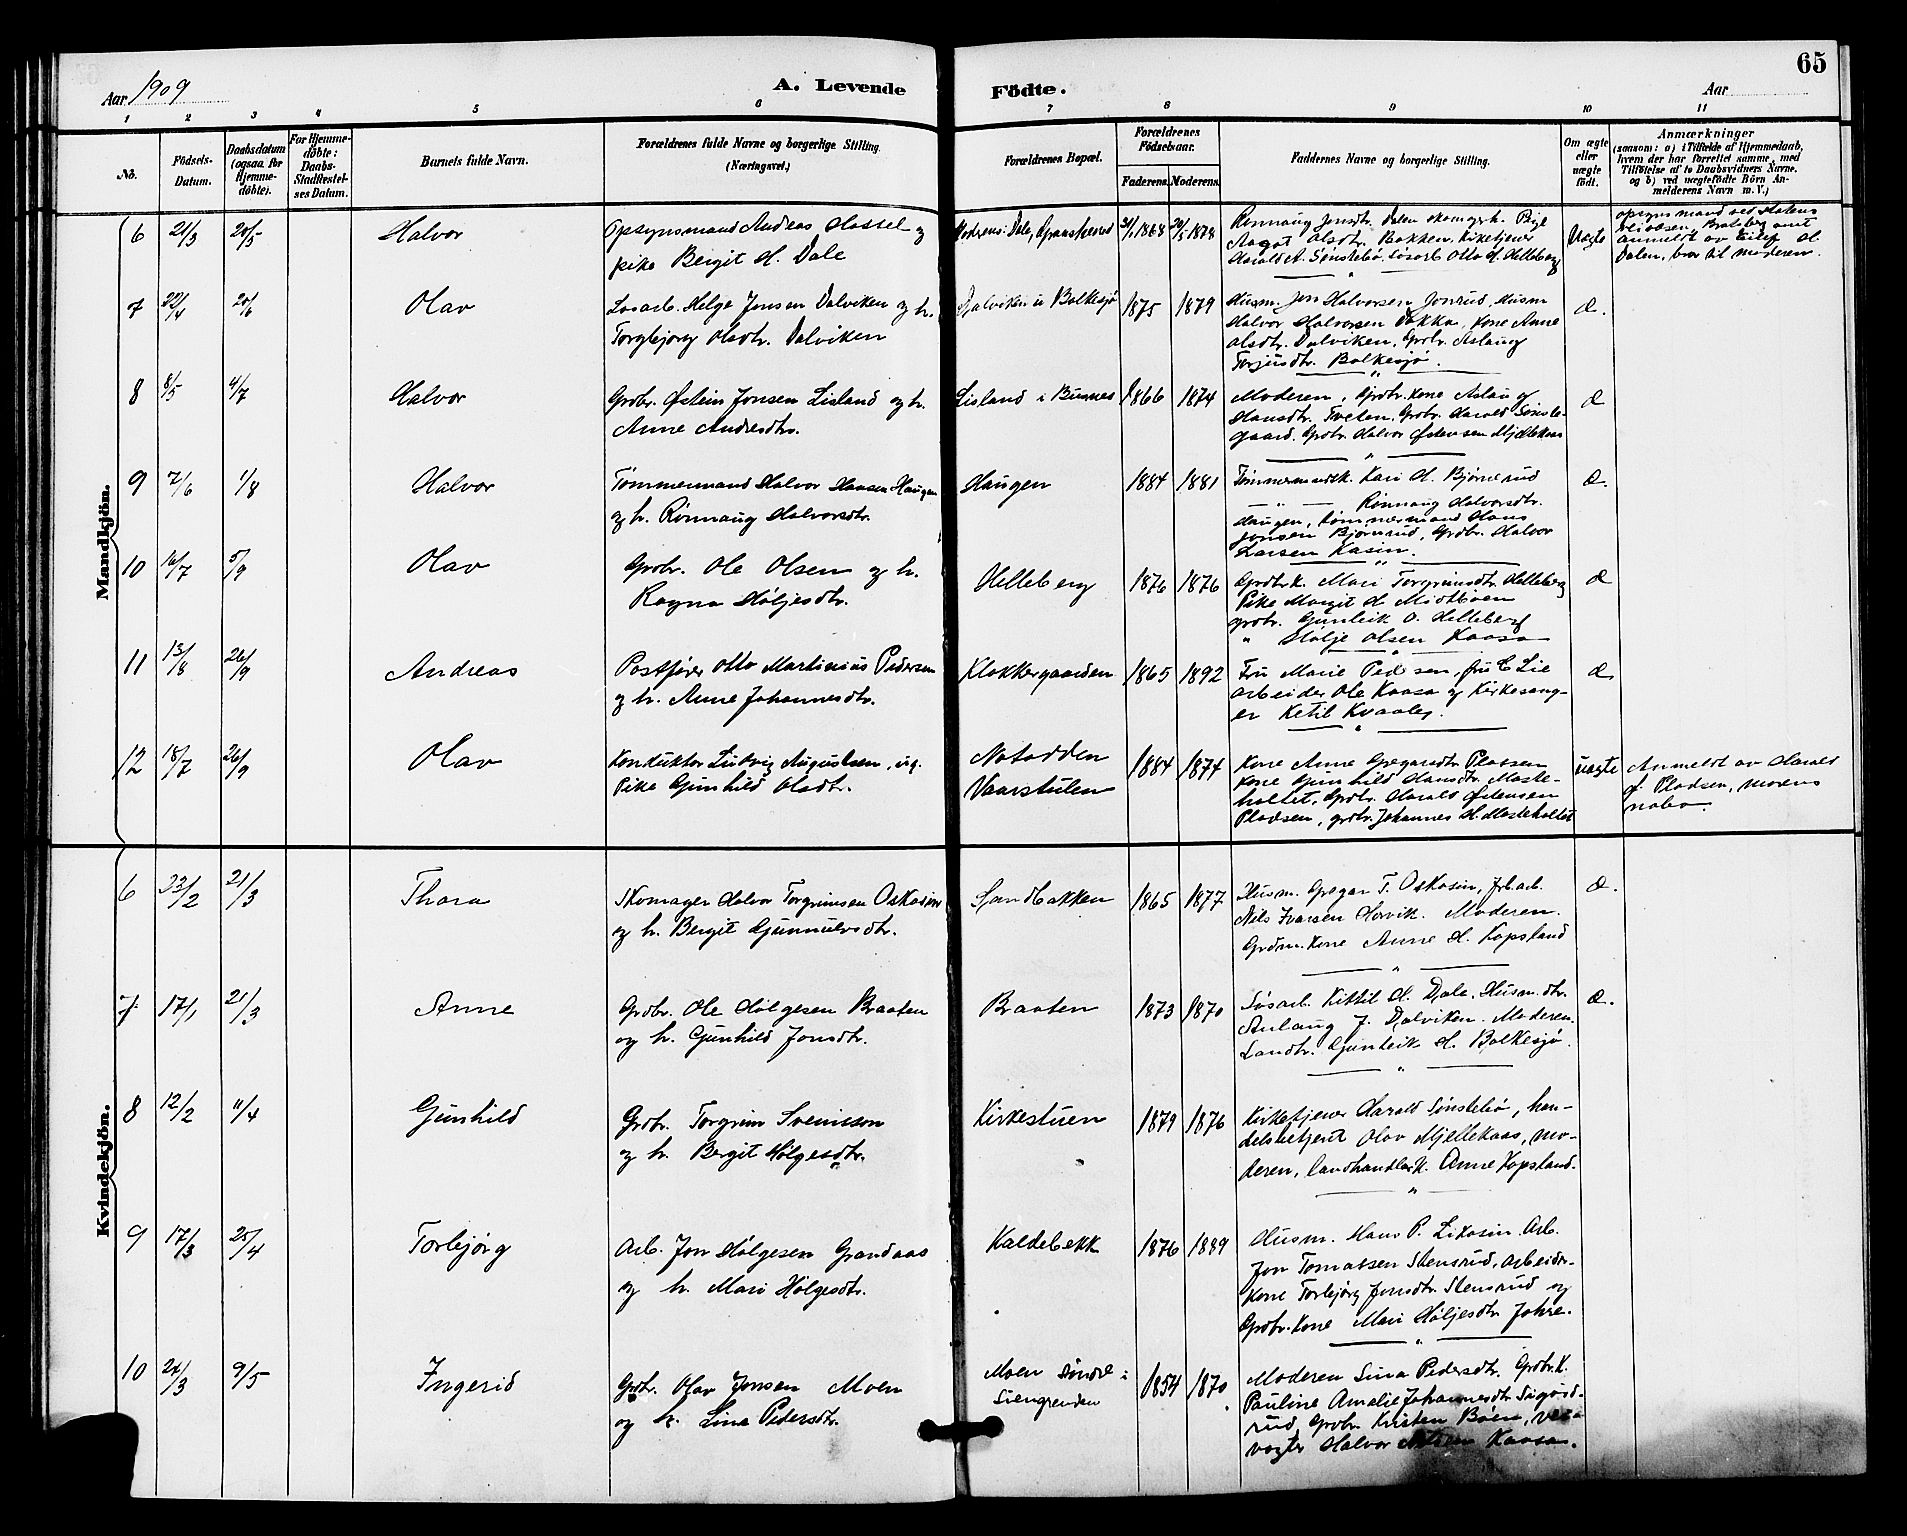 65
Aar 1909
A. Levende
Födte.
Aar
1 2 3 4 5 6 7 8 9 10 11
No.
Födsels-
Datum.
Daabsdatum
(ogsaa for
Hjemme-
döbte).
For Hjemme-
döbte:
Daabs-
Stadfæstel-
ses Datum.
Barnets fulde Navn.
Forældrenes fulde Navne og borgerlige Stilling
(Næringsvei.)
Forældrenes Bopæl.
Forældrenes
Födselsaar.
Faderens. Moderens.
Faddernes Navne og borgerlige Stilling.
Om ægte
eller
uægte
födt.
Anmærkninger
(saasom: a) i Tilfælde af Hjemmedaab,
hvem der har forrettet samme, med
Tilföielse af to Daabsvidners Navne,
og b) ved uægtefödte Börn An-
melderens Navn m. V.)
Mandkjön.
6 21/3 20/5 Halvor
Opsynsmand Andreas Hassel og
pike Bergit H. Dale
Moderens: Dale, Gransherred
21/1 1868 20/5 1878
Rønnaug Jonsdtr. Dalen skomagerk.
Aagot Olsdtr. Bakken. Kirketjener
Harald A. Sønstebø, Løsarb. Otto H. Helleberg
Uægte
opsynsmand ved Statens
veivæsen, Bratsberg amt
anmeldt av Eilef H.
Dalen, bror til moderen.
7 22/4 20/6 Olav
Løsarb. Helge Jonsen Dalviken og h.
Torgbjørg Olsdtr. Dalviken
Dalviken i Bolkesjø
1875 1879
Husm. Jon Halvorsen Jonrud, Husm
Halvor Halvorsen Dokka, Kone Anne
Olsdtr. Dalviken, Grbr. Aslaug
Torjusdtr. Bolkesjø.
Æ.
8 8/5 4/7 Halvor
Grdbr. Østein Jonsen Lisland og h.
Anne Andresdtr.
Lisland i Busnes
1866 1874
Moderen, Grdbr. Kone Aslaug
Hansdtr. Tveten, Grdbr. Harald Sønste-
gaard. Grdbr. Halvor Østensen Mjellekaas
Æ
9 7/6 1/8 Halvor
Tømmermand Halvor Hansen Haugen
og h. Rønnaug Halvorsdtr.
Haugen
1884 1881
Tømmermandsk. Kari H. Bjørnerud
— " — Rønnaug Halvorsdtr.
Haugen, tømmermand Hans
Jonsen Bjørnrud, Grdbr. Halvor
Larsen Kasin.
Æ.
10 16/7 5/9 Olav
Grdbr. Ole Olsen og h.
Ragna Høljesdtr.
Helleberg
1876 1876
Grdbrk. Mari Torgrimsdtr. Helleberg
Pike Margit H. Midtbøen
grdbr. Gunleik O. Helleberg
" Hølje Olsen Kaasa
Æ
11 13/8 26/9 Andreas
Postfører Otto Martinius Pedersen
og h. Anne Johannesdtr.
Klokkergaarden
1865 1892
Fru Marie Pedersen, fru E Lie
arbeider Ole Kaasa og Kirkesang-
er Ketil Kvaale.
Æ
12 18/7 26/9 Olav
Konduktør Ludvig Augustsen, ug.
Pike Gunhild Olsdtr.
Notodden
Vaarstulen
1884 1874
Kone Anne Gregarsdtr. Plassen
Kone Gunhild Hansdtr. Maste-
holtet, Grdbr. Harald Østensen
Pladsen, grdbr. Johannes H. Masteholtet
uægte
Anmeldt av Harald
Ø. Pladsen, morens
nabo.
Kvindekjön.
6 23/2 21/3 Thora
Skomager Halvor Torgrimsen Oskasin
og h. Bergit Gunnulvsdtr.
Sandbakken
1865 1877
Husm. Gregar T. Oskasin, Jrb.arb.
Nils Ivarsen Horvik. Moderen.
Grdm. Kone Anne H. Kopsland
Æ.
7 17/1 21/3 Anne
Grdbr. Ole Hølgesen Braaten
og h. Gunhild Jonsdtr.
Braaten
1873 1870
Løsarb. Kittil H. Dale, Husm.dtr.
Anlaug J. Dalviken. Moderen.
Landh. Gunleik H. Bolkesjø.
Æ.
8 12/2 11/4 Gunhild
Grdbr. Torgrim Sveinsson
og h. Bergit Hølgesdtr.
Kirkestuen
1879 1876
Kirketjener Harald Sønstebø, han-
delsbetjent Olav Mjellekaas, mo-
deren, landhandlerk. Anne Kopsland.
9 17/3 25/4 Torbjørg
Arb. Jon Hølgesen Grandaas
og h. Mari Hølgesdtr.
Kaldebekk
1876 1889
Husm. Hans P. Likasin Arb.
Jon Tomassen Stensrud, arbeider-
kone Torbjørg Jonsdtr. Stensrud og
Grdbr. Kone Mari Høljesdtr. Johre.
10 24/3 9/5 Ingerid
Grdbr. Olav Jonsen Moen
og h. Lina Pedersdtr.
Moen søndre i
Svengrenden
1854 1870
Moderen Lina Pedersdtr. Grdbr.K.
Pauline Amalie Johannesdtr. Sigurds-
rud, Grdbr. Kristen Bøen, vei-
vogter Halvor Kaasa.